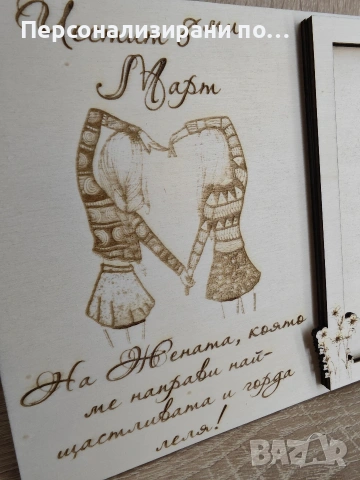 Персонализирани по...
Честит 8-ми
Март
На Жената, която
ме направи най-
щастливата и горда
леля!
BAZAR
bg